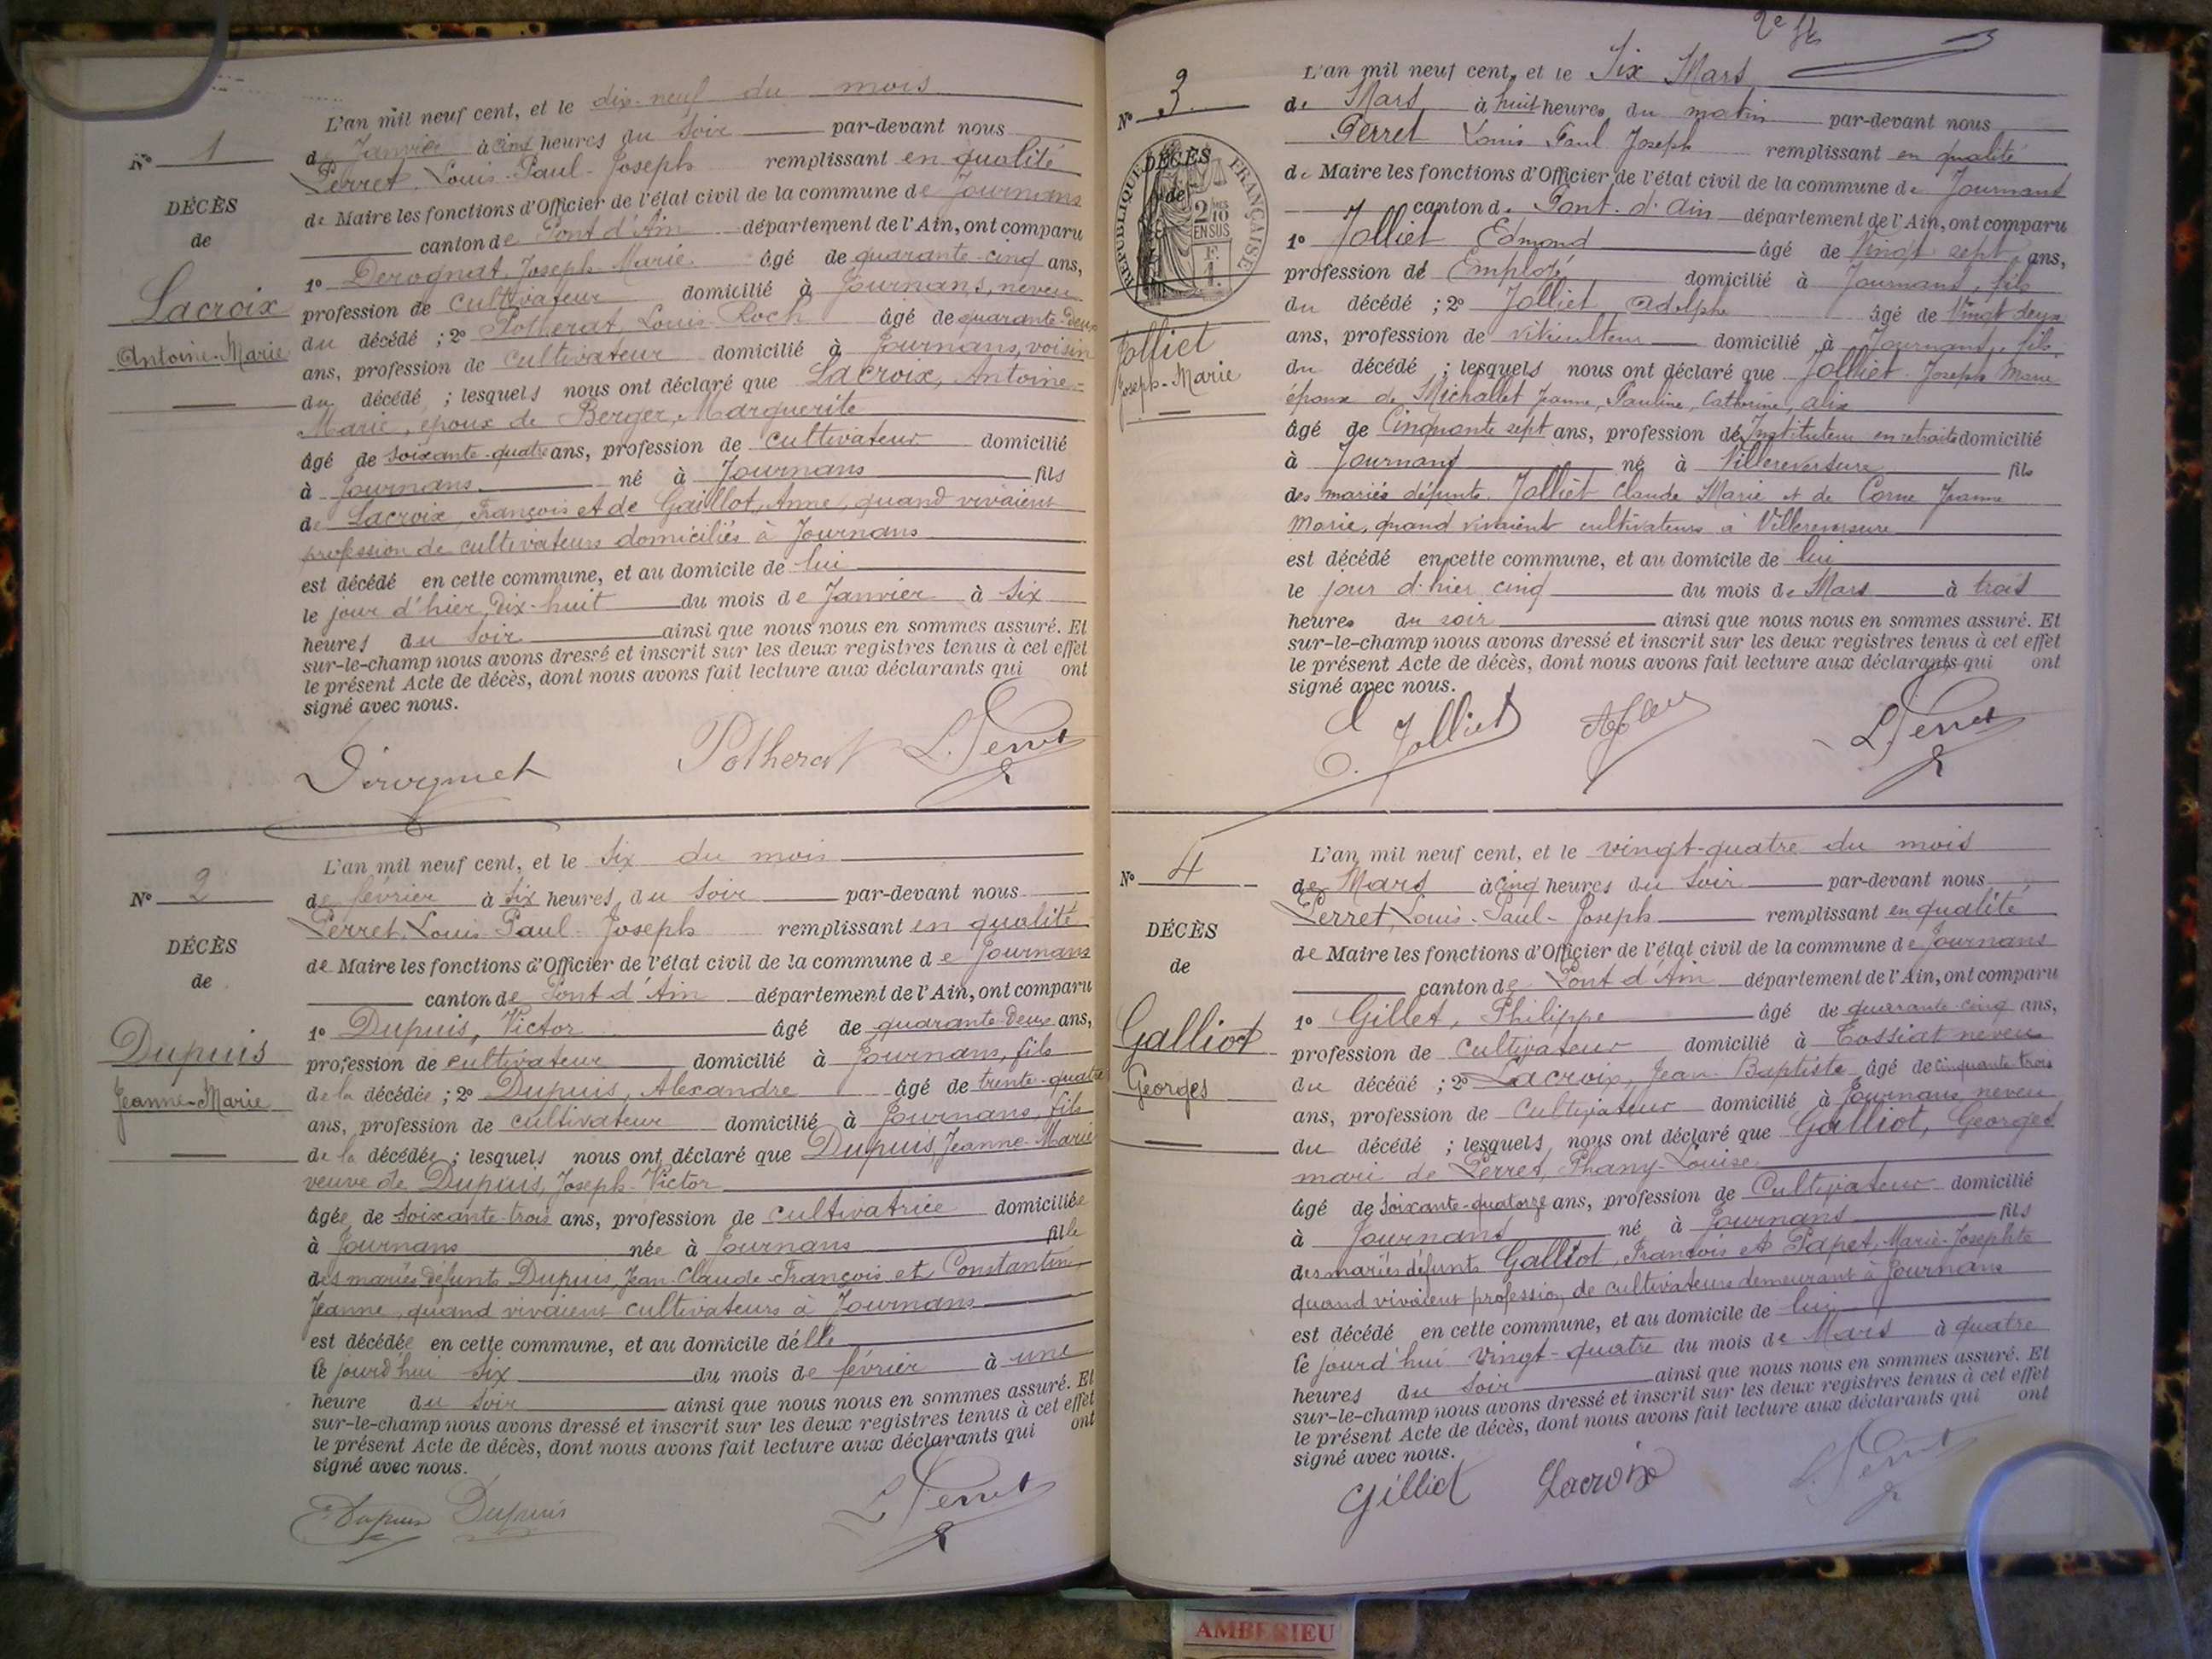 L'an mil neuf cent, et le dix-neuf du mois
N° 1
de Janvier à cinq heures du Soir par-devant nous
Perret, Louis-Paul-Joseph remplissant en qualité
DÉCÈS
de Maire les fonctions d'Officier de l'état civil de la commune de Journans
de
canton de Pont d'Ain département de l'Ain, ont comparu
1° Derognat, Joseph Marie âgé de quarante-cinq ans,
Lacroix
profession de cultivateur domicilié à Journans, neveu
du décédé ; 2° Potherat, Louis Roch âgé de quarante-deux
Antoine-Marie
ans, profession de cultivateur domicilié à Journans, voisin
du décédé ; lesquels nous ont déclaré que Lacroix, Antoine-
Marie, époux de Berger, Marguerite
âgé de soixante-quatre ans, profession de cultivateur domicilié
à Journans né à Journans fils
de Lacroix, François et de Gaillot, Anne, quand vivaient
profession de cultivateurs domiciliés à Journans
est décédé en cette commune, et au domicile de lui
le jour d'hier, dix-huit du mois de Janvier à six
heures du Soir ainsi que nous nous en sommes assuré. Et
sur-le-champ nous avons dressé et inscrit sur les deux registres tenus à cet effet
le présent Acte de décès, dont nous avons fait lecture aux déclarants qui ont
signé avec nous.
Potherat L. Perret
L'an mil neuf cent, et le Six du mois
N° 2
de février à six heures du Soir par-devant nous
Perret, Louis Paul-Joseph remplissant en qualité
DÉCÈS
de Maire les fonctions d'Officier de l'état civil de la commune de Journans
de
canton de Pont d'Ain département de l'Ain, ont comparu
1° Dupuis, Victor âgé de quarante-deux ans,
Dupuis
profession de cultivateur domicilié à Journans, fils
Jeanne-Marie
de la décédée ; 2° Dupuis, Alexandre âgé de trente-quatre
ans, profession de cultivateur domicilié à Journans, fils
de la décédée ; lesquels nous ont déclaré que Dupuis, Jeanne-Marie
veuve de Dupuis, Joseph-Victor
âgée de soixante-trois ans, profession de cultivatrice domiciliée
à Journans née à Journans fille
des mariés défunts Dupuis, Jean-Claude-François et Constantin
Jeanne, quand vivaient cultivateurs à Journans
est décédée en cette commune, et au domicile d'elle
le jourd'hui six du mois de février à une
heure du Soir ainsi que nous nous en sommes assuré. Et
sur-le-champ nous avons dressé et inscrit sur les deux registres tenus à cet effet
le présent Acte de décès, dont nous avons fait lecture aux déclarants qui ont
signé avec nous.
Dupuis Dupuis L. Perret
L'an mil neuf cent, et le Six Mars
N° 3
de Mars à huit heures du matin par-devant nous
Perret Louis Paul Joseph remplissant en qualité
RÉPUBLIQUE FRANÇAISE
2/10 EN SUS
F. 1.
DÉCÈS
de
de Maire les fonctions d'Officier de l'état civil de la commune de Journans
canton de Pont-d'Ain département de l'Ain, ont comparu
1° Jolliet Edmond âgé de Vingt sept ans,
profession de Employé domicilié à Journans, fils
du décédé ; 2° Jolliet Adolphe âgé de Vingt deux
Jolliet
ans, profession de viticulteur domicilié à Journans, fils
Joseph-Marie
du décédé ; lesquels nous ont déclaré que Jolliet Joseph Marie
époux de Michallet Jeanne, Pauline, Catherine, Alix
âgé de Cinquante sept ans, profession de Instituteur en retraite domicilié
à Journans né à Villereversure fils
des mariés défunts Jolliet Claude Marie et de Corne Jeanne
Marie, quand vivaient cultivateurs à Villereversure
est décédé en cette commune, et au domicile de lui
le jour d'hier cinq du mois de Mars à trois
heures du soir ainsi que nous nous en sommes assuré. Et
sur-le-champ nous avons dressé et inscrit sur les deux registres tenus à cet effet
le présent Acte de décès, dont nous avons fait lecture aux déclarants qui ont
signé avec nous.
E. Jolliet L. Perret
L'an mil neuf cent, et le vingt-quatre du mois
N° 4
de Mars à cinq heures du Soir par-devant nous
Perret, Louis-Paul-Joseph remplissant en qualité
DÉCÈS
de Maire les fonctions d'Officier de l'état civil de la commune de Journans
de
canton de Pont d'Ain département de l'Ain, ont comparu
1° Gillet, Philippe âgé de quarante-cinq ans,
Galliot
profession de cultivateur domicilié à Tossiat neveu
Georges
du décédé ; 2° Lacroix, Jean-Baptiste âgé de cinquante trois
ans, profession de Cultivateur domicilié à Journans, neveu
du décédé ; lesquels nous ont déclaré que Galliot, Georges
mari de Perret, Phany-Louise
âgé de soixante-quatorze ans, profession de Cultivateur domicilié
à Journans né à Journans fils
des mariés défunts Galliot, François et Papet, Marie-Josephte
quand vivaient profession de cultivateurs demeurant à Journans
est décédé en cette commune, et au domicile de lui
le jourd'hui vingt-quatre du mois de Mars à quatre
heures du Soir ainsi que nous nous en sommes assuré. Et
sur-le-champ nous avons dressé et inscrit sur les deux registres tenus à cet effet
le présent Acte de décès, dont nous avons fait lecture aux déclarants qui ont
signé avec nous.
Gilliet Lacroix L. Perret
AMBERIEU